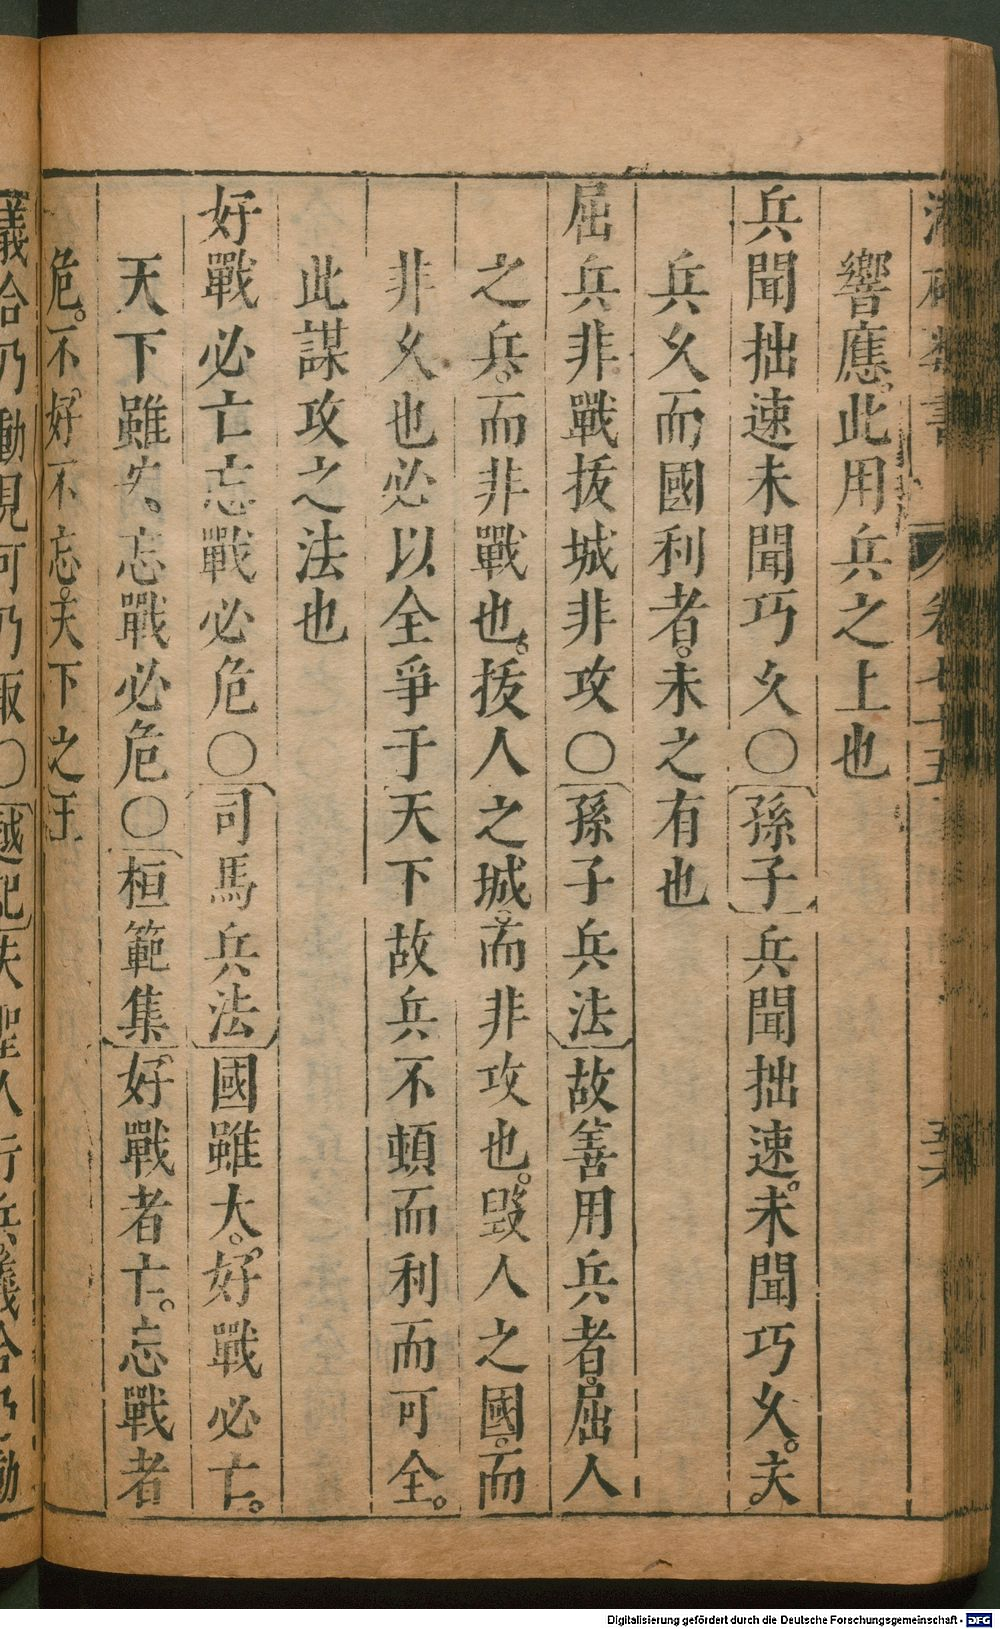 響應。此用兵之上也
兵聞拙速未聞巧久○孫子兵聞拙速。未聞巧久。夫
兵久而國利者。未之有也
屈兵非戰拔城非攻○孫子兵法故善用兵者。屈人
之兵。而非戰也。拔人之城。而非攻也。毀人之國。而
非久也必以全爭于天下故兵不頓而利而可全。
此謀攻之法也
好戰必亡忘戰必危○司馬兵法國雖大。好戰必亡。
天下雖安、忘戰必危○桓範集好戰者亡。忘戰者
危。不好不忘。天下之王
議合乃動見可乃取○越記夫聖人行兵。義合乃動
Digitalisierung gefördert durch die Deutsche Forschungsgemeinschaft - DFG